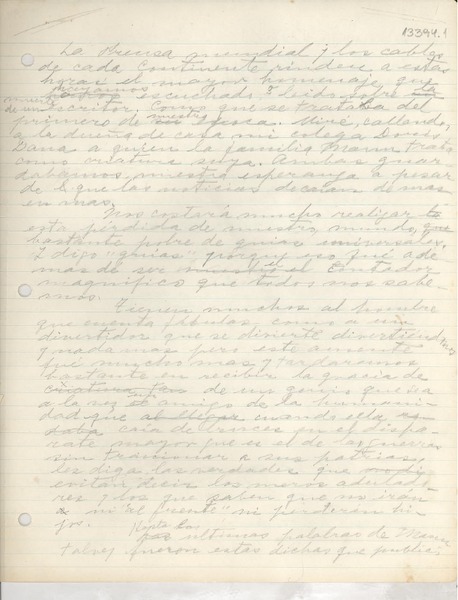 13394.1
La Prensa mundial y los cables
de cada Continente rinden a estas
horas el mayor homenaje que
hayamos escuchado y leído sobre la
muerte
de un escritor. Como que se trataba del
primero de nuestra época. Miré callando
a la dueña de casa mi colega Doris
Dana a quien la familia Mann trató
como criatura suya. Ambas guar
dábamos nuestra esperanza a pesar
de que las noticias decaían de mas
en mas.
Nos costará mucho realizar
esta pérdida de nuestro mundo, que
bastante pobre de guías universales.
Y digo "guías" porque eso fué ade
mas de ser el Contador
magnífico que todos nos sabe-
mos.
Tienen muchos al hombre
que cuenta fábulas como a un
divertidor que se divierte divirtiendo
y nada mas pero este amante
fué mucho mas y tardaremos
bastante en recibir la gracia de
de un genio que sea
a la vez el amigo de la humani-
dad que cuando ella
caía de bruces en el dispa-
rate mayor que es el de las guerras
sin traicionar a sus patrias,
les diga las verdades que
evitan decir los meros adulado
res y los que saben que no irán
ni "al frente" ni perderán hi-
jos.
Repito las
ultimas palabras de Mann
talvez fueron estas dichas que publica